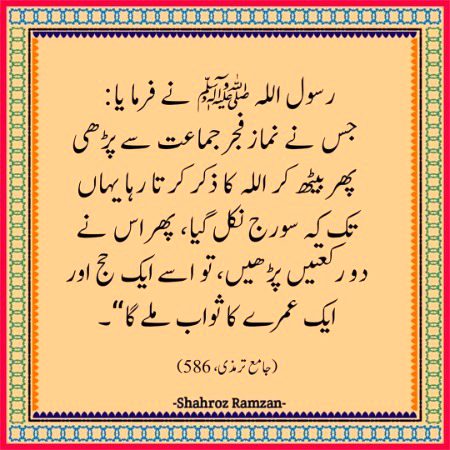 رسول اللہ ﷺ نے فرمایا:
جس نے نماز فجر جماعت سے پڑھی
پھر بیٹھ کر اللہ کا ذکر کرتا رہا یہاں
تک کہ سورج نکل گیا، پھر اس نے
دو رکعتیں پڑھیں، تو اسے ایک حج اور
ایک عمرے کا ثواب ملے گا“۔
(جامع ترمذی، 586)
-Shahroz Ramzan-